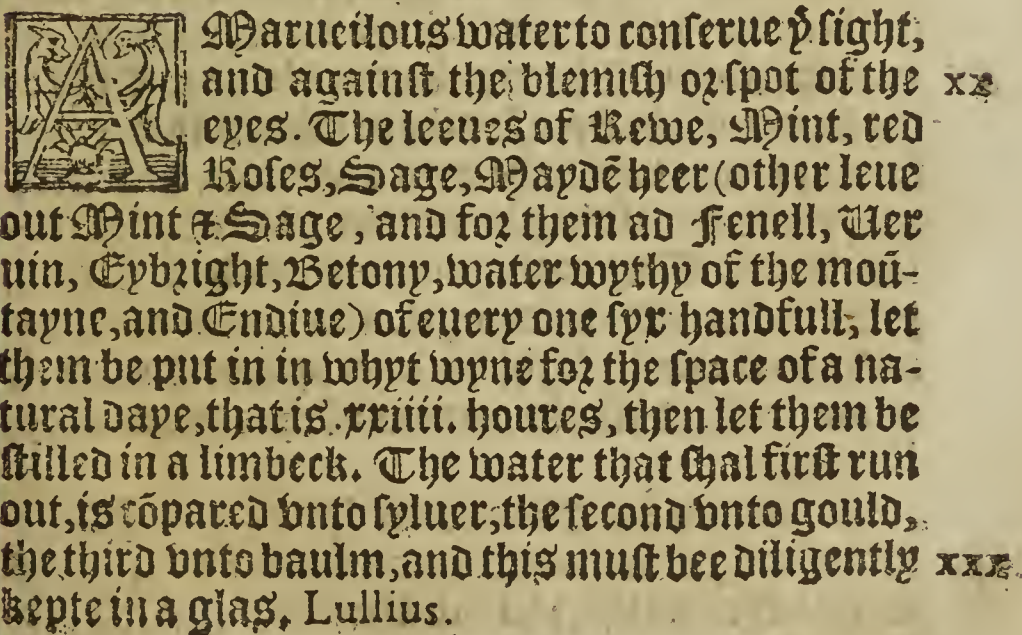 A Marueilous water to conserue yͤ sight,
and against the blemish or spot of the xx
eyes. The leeues of Rewe, Mint, red
Roses, Sage, Maydē heer (other leue
out Mint & Sage, and for them ad Fenell, Uer
uin, Eybright, Betony, water wythy of the moū-
tayne, and Endiue) of euery one syx handfull, let
them be put in in whyt wyne for the space of a na-
tural daye, that is .xxiiii. houres, then let them be
stilled in a limbeck. The water that shal first run
out, is cōpared vnto syluer, the second vnto gould,
the third vnto baulm, and this must bee diligently xxx
kepte in a glas, Lullius.